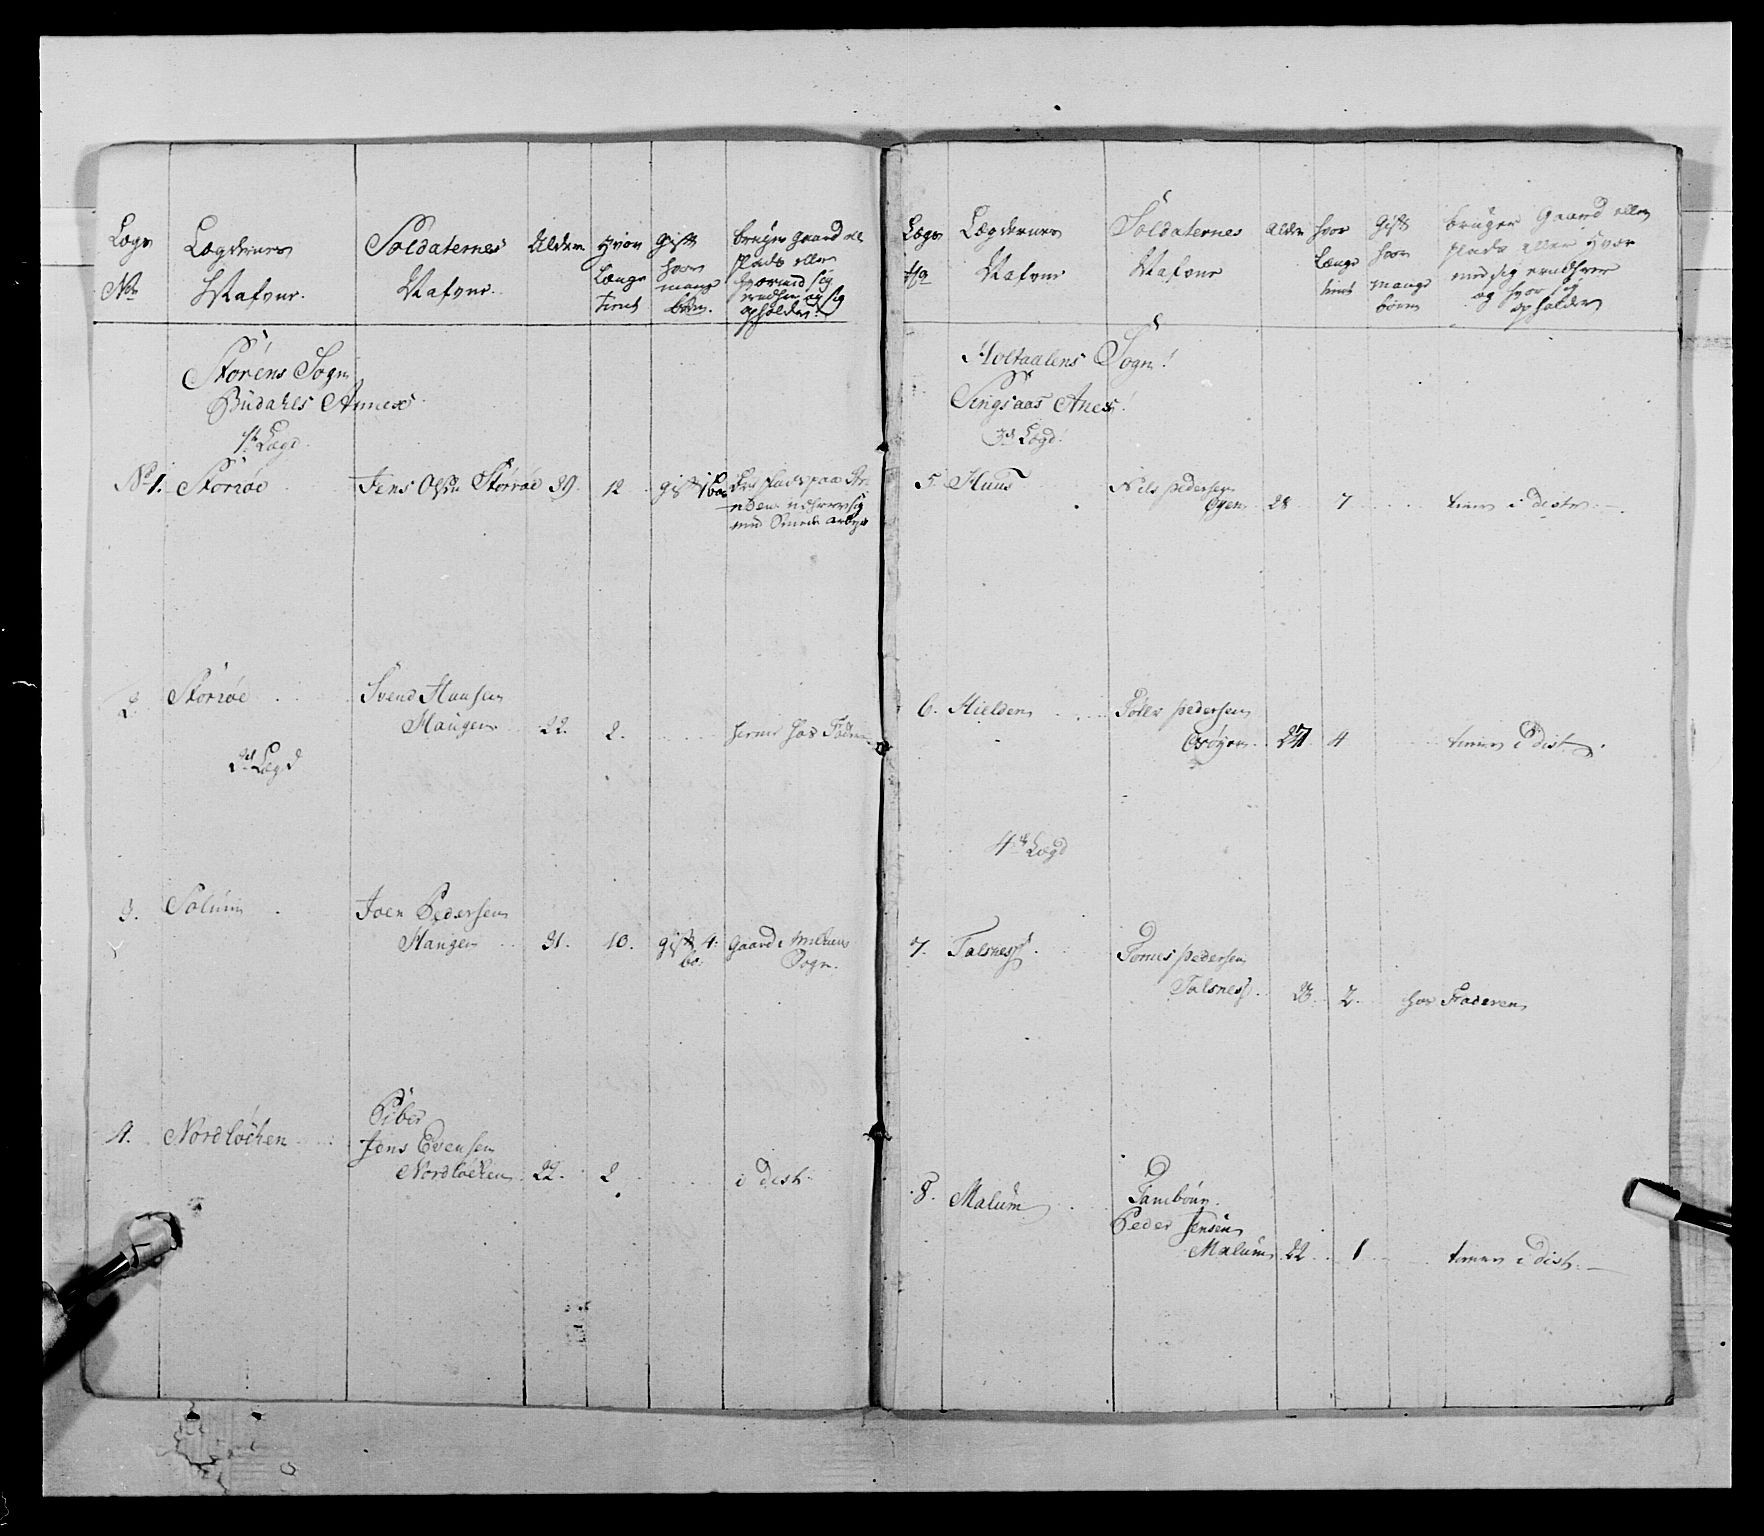 Lægs
No
Lægdernes
Nafvne.
Soldaternes
Nafvne.
Alder
Hvor
Længe
tient
Gift
hvor
mange
børn.
bruger gaard ell
plads eller
hvormed sig
ernehrer og sig
opholder
Störens Sogn
Budahls Annex
1te Lægd
No 1. Storröe Jens Olsen Storröe 39. 12 gift 1 bar
med Smede arbeyde
2. Storröe Svend Hansen
Haugen 22. 2. hos Faderen
2d Lægd
3. Solum Joen Pedersen
Haugen 31. 10. gift 4. gaard i
bø: Sogn.
Piber
4. Nordløcken Jens Evensen
Nordløcken 22. 2 i dist.
Lægs
No
Lægdernes
Nafvne
Soldaternes
Nafvne
Alder
hvor
længe
tient
Gift
hvor
mange
børn
bruger Gaard eller
plads eller hvor
med sig ernehrer
og hvor sig
opholder
Holtaalens Sogn!
Singsaas Anex!
3d Lægd!
5. Huus Nils Pedersen
28 7 tiener i distr.
6. Hielden Peder Pedersen
27 4 tiener i dist.
4de Lægd
7. Talsnes Tomes Pedersen
Talsnes 23. 2. hos Faderen
8. Malum Tambour.
Peder Jensen
Malum 22 1 tiener i dist.